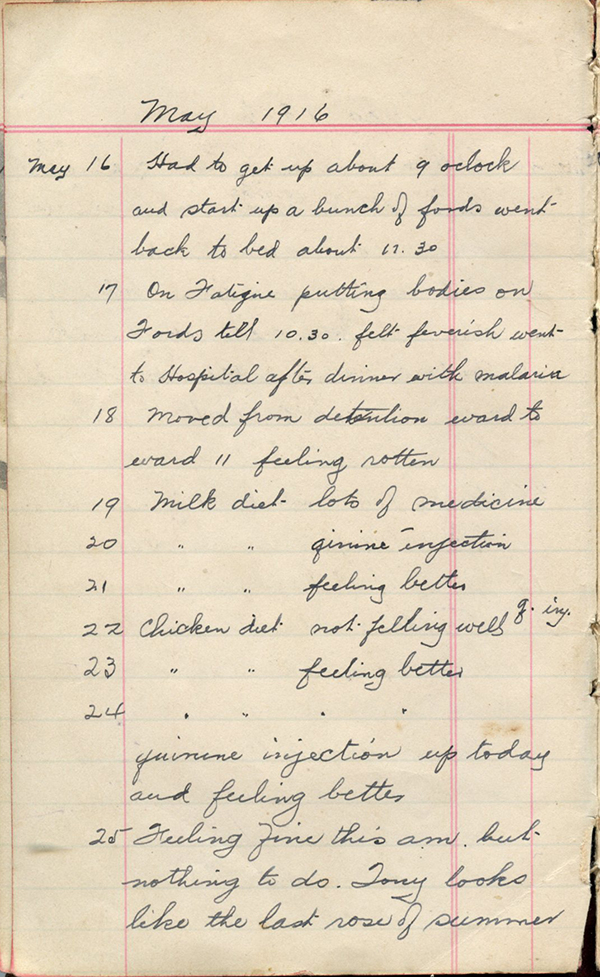 May 1916
May 16 Had to get up about 9 oclock
and start up a bunch of fords went
back to bed about 11.30
17 On Fatigue putting bodies on
Fords till 10.30. felt feverish went
to Hospital after dinner with malaria
18 Moved from detention ward to
ward 11 feeling rotten
19 Milk diet lots of medicine
20 " " qinine injection
21 " " feeling better
22 Chicken diet not felling well q. inj.
23 " " feeling better
24 " " " "
quinine injection up today
and feeling better
25 Feeling fine this am. but
nothing to do. Tony looks
like the last rose of summer